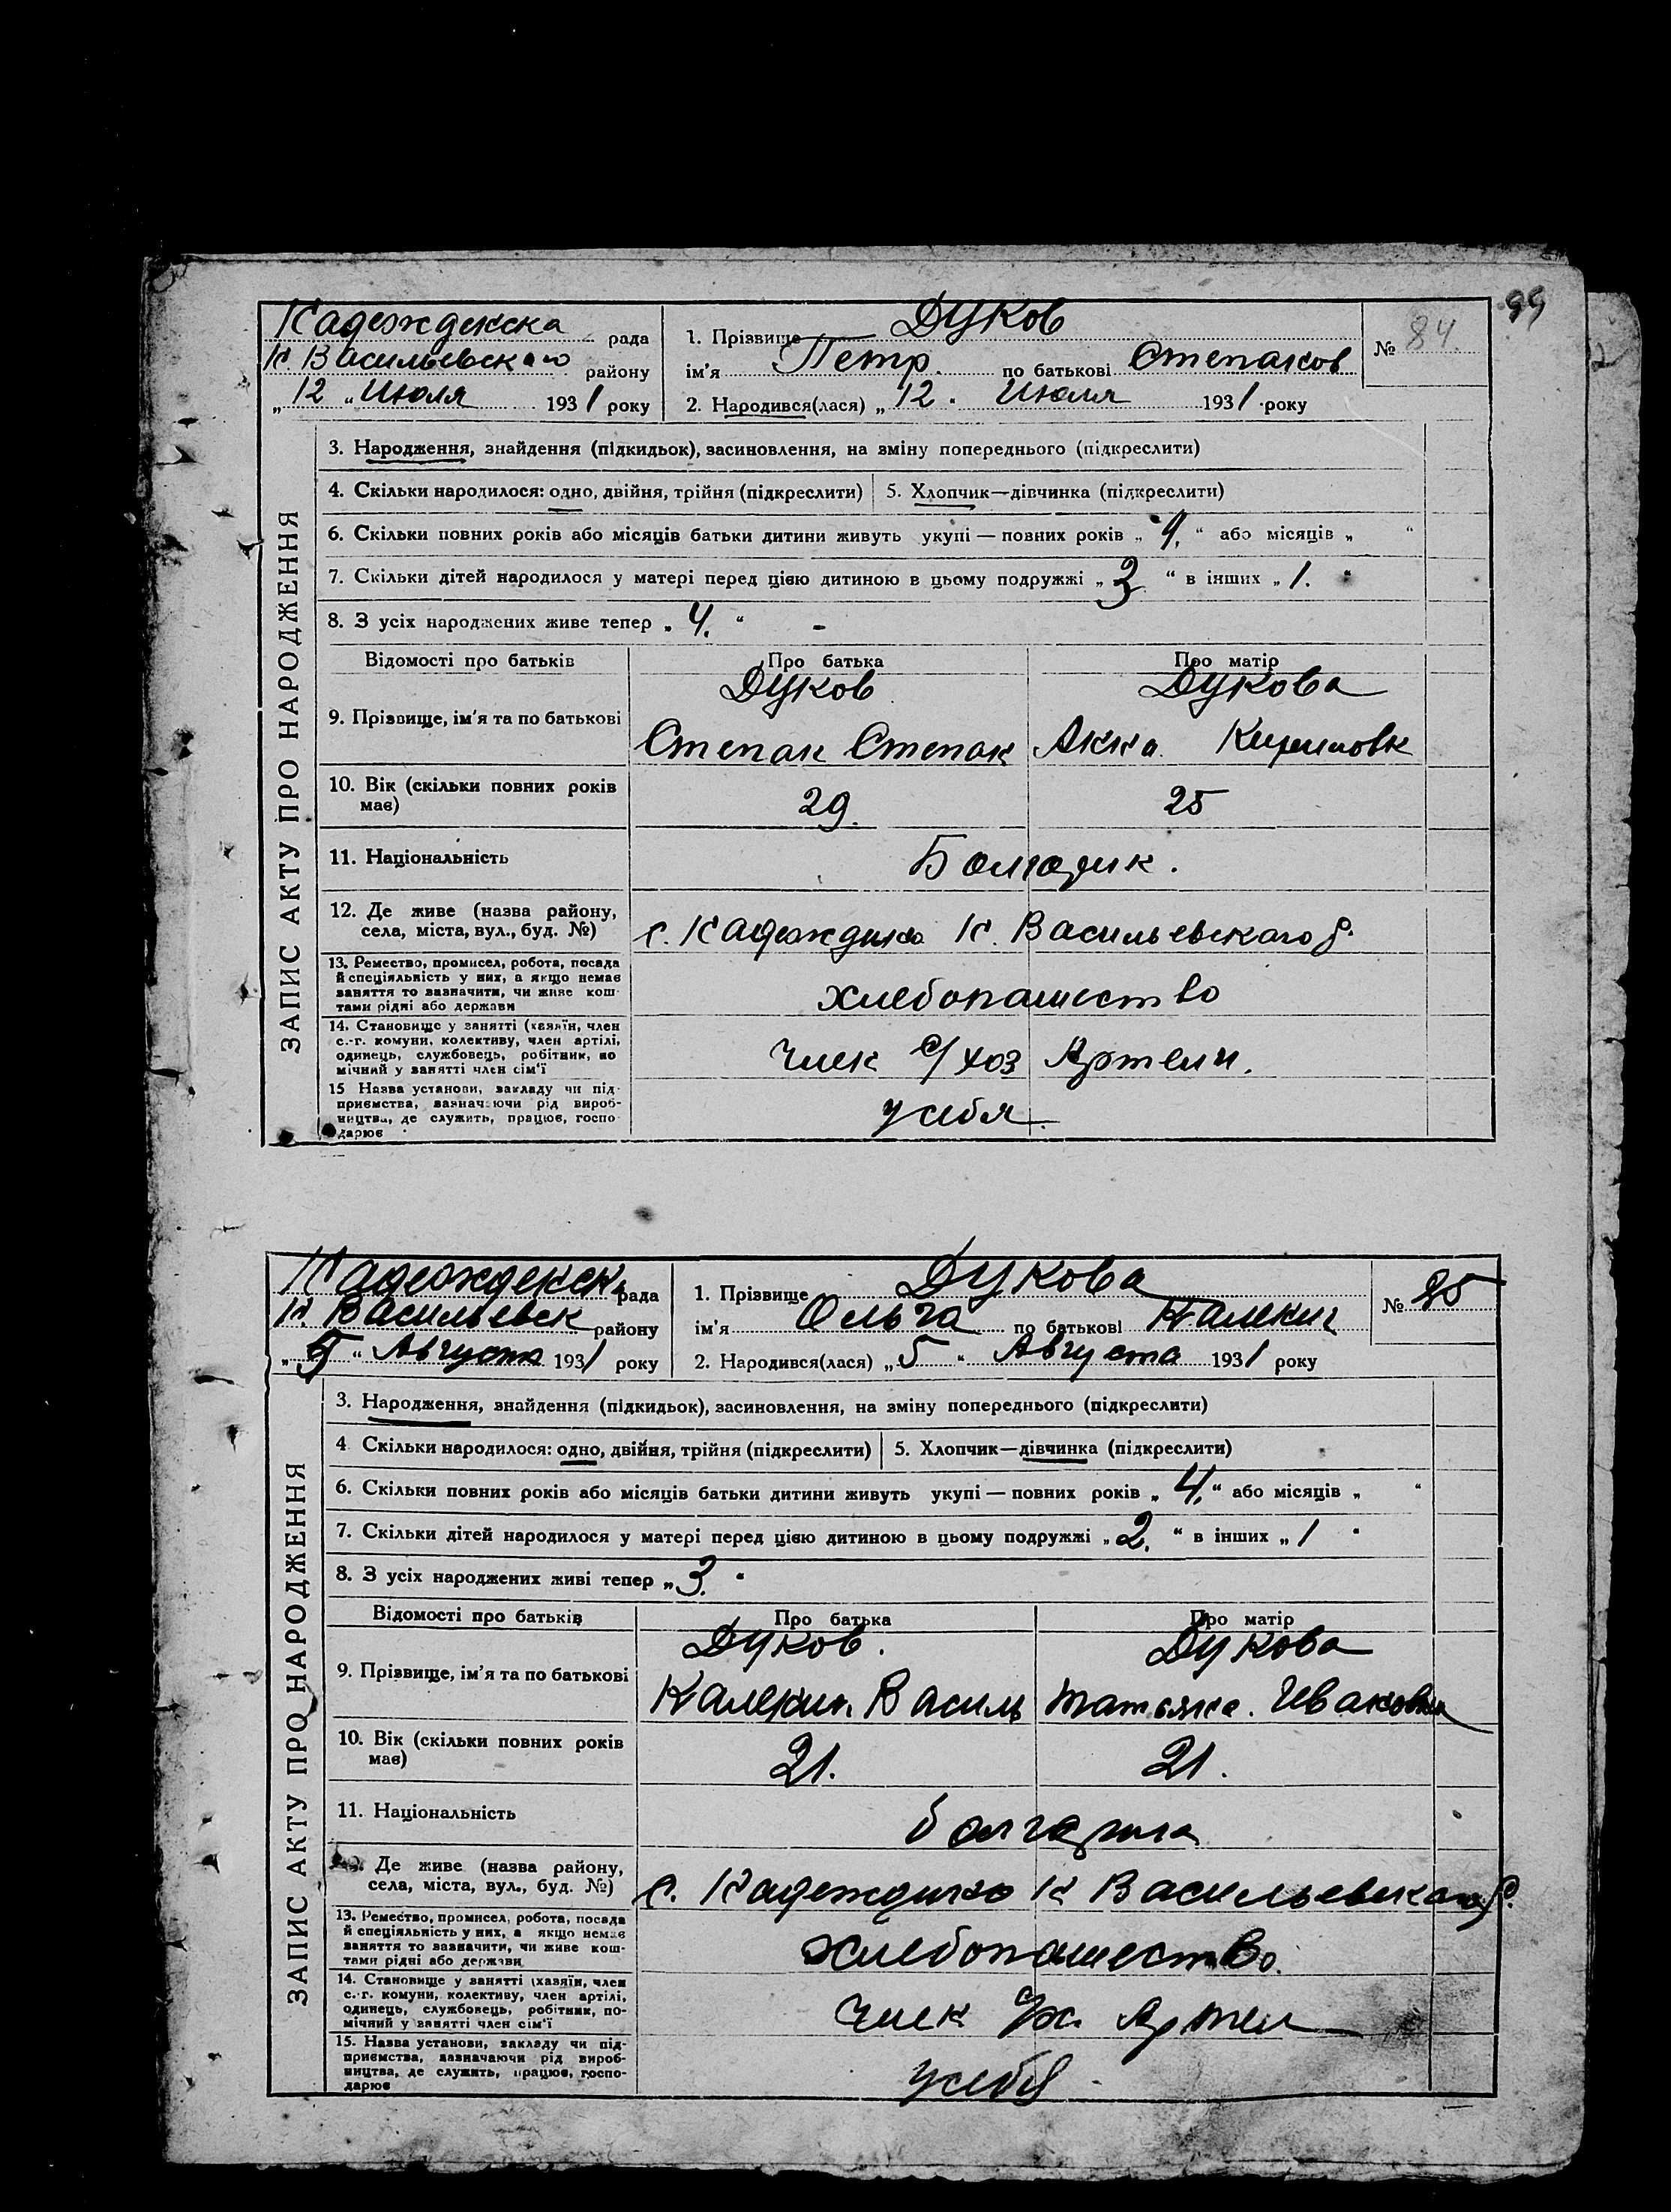 99
ЗАПИС АКТУ ПРО НАРОДЖЕННЯ
Надежденска рада
Н. Васильевскаго району
„ 12 „ Июля 1931 року
1. Прізвище Дуков
ім'я Петр. по батькові Степанов
№ 84.
2. Народився(лася) „ 12. Июля 1931 року
3. Народження, знайдення (підкидьок), засиновлення, на зміну попереднього (підкреслити)
4. Скільки народилося: одно, двійня, трійня (підкреслити) 5. Хлопчик—дівчинка (підкреслити)
6. Скільки повних років або місяців батьки дитини живуть укупі — повних років „ 9. “ або місяців „ “
7. Скільки дітей народилося у матері перед цією дитиною в цьому подружжі „ 3 “ в інших „ 1. “
8. З усіх народжених живе тепер „ 4. “ -
Відомості про батьків Про батька Про матір
Дуков Дукова
9. Прізвище, ім'я та по батькові Степан Степан Анна Кириловн
10. Вік (скільки повних років має) 29. 25
11. Національність Болгарин.
12. Де живе (назва району,
села, міста, вул., буд. №) с. Надеждино Н. Васильевскаго р.
13. Ремество, промисел, робота, посада
й спеціяльність у них, а якщо немає
заняття то зазначити, чи живе кош-
тами рідні або держави
хлебопашество
14. Становище у занятті (хазяїн, член
с.-г. комуни, колективу, член артілі,
одинець, службовець, робітник, по
мічний у занятті член сім'ї
член с/хоз Артели.
15 Назва установи, закладу чи під-
приємства, зазначаючи рід вироб-
ництва, де служить, працює, госпо-
дарює
у себя
ЗАПИС АКТУ ПРО НАРОДЖЕННЯ
Надежденск рада
Н. Васильевск району
„ 5 “ Августа 1931 року
1. Прізвище Дукова
ім'я Ольга по батькові
№ 85
2. Народився(лася) „ 5 “ Августа 1931 року
3. Народження, знайдення (підкидьок), засиновлення, на зміну попереднього (підкреслити)
4 Скільки народилося: одно, двійня, трійня (підкреслити) 5. Хлопчик—дівчинка (підкреслити)
6. Скільки повних років або місяців батьки дитини живуть укупі — повних років „ 4. “ або місяців „ “
7. Скільки дітей народилося у матері перед цією дитиною в цьому подружжі „ 2. “ в інших „ 1 “
8. З усіх народжених живі тепер „ 3. “
Відомості про батьків Про батька Про матір
Дуков. Дукова
9. Прізвище, ім'я та по батькові Василь татьяна. Ивановна
10. Вік (скільки повних років має) 21. 21.
11. Національність болгарина
Де живе (назва району,
села, міста, вул., буд. №) с. Надеждино Н Васильевскаго р.
13. Ремество, промисел, робота, посада
й спеціяльність у них, а якщо немає
заняття то зазначити, чи живе кош-
тами рідні або держави
хлебопашество.
14. Становище у занятті (хазяїн, член
с.-г. комуни, колективу, член артілі,
одинець, службовець, робітник, по-
мічний у занятті член сім'ї
член с/х. Артел
15. Назва установи, закладу чи під-
приємства, зазначаючи рід вироб-
ництва, де служить, працює, госпо-
дарює
у себя